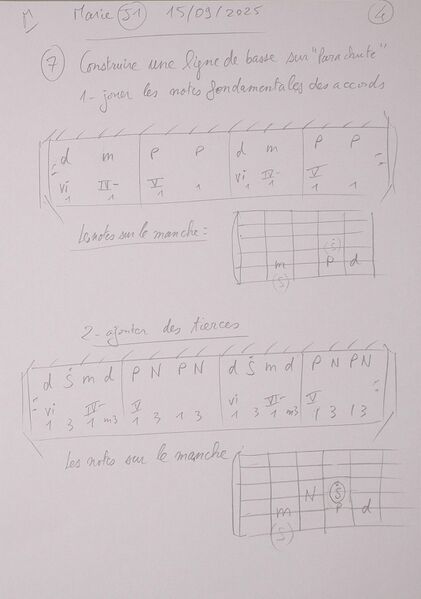 Marie S1 15/09/2025 4
7 Construire une ligne de basse sur "Parachute"
1- jouer les notes fondamentales des accords
d m P P d m P P
vi IV- V vi IV- V
1 1 1 1 1 1 1 1
Les notes sur le manche :
(Ṡ)
m P d
(S)
2- ajouter des tierces
d Ṡ m d P N P N d Ṡ m d P N P N
vi IV- V vi VI- V
1 3 1 m3 1 3 1 3 1 3 1 m3 1 3 1 3
Les notes sur le manche :
N Ṡ
m P d
(S)